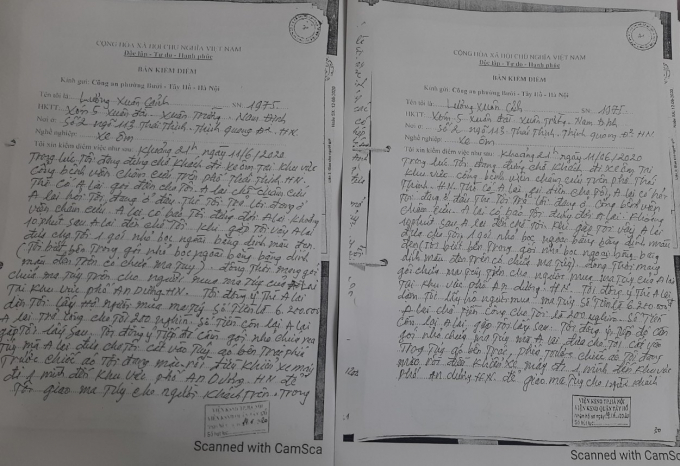 CỘNG HÒA XÃ HỘI CHỦ NGHĨA VIỆT NAM
Độc lập - Tự do - Hạnh phúc
BẢN KIỂM ĐIỂM
Kính gửi: Công an phường Bưởi - Tây Hồ - Hà Nội
Tên tôi là: Lường Xuân Cảnh SN: 1975
HKTT: Xóm 5 Xuân Đài - Xuân Trường - Nam Định
Nơi ở: Số 2 ngõ 113 Thái Thịnh, Thịnh Quang, Đ.Đ, HN
Nghề nghiệp: Xe ôm
Tôi xin kiểm điểm việc như sau: Khoảng 21h ngày 11/6/2020
Trong lúc Tôi đang đứng chờ Khách đi xe ôm Tại Khu vực
Cổng bệnh viện Châm Cứu Trên phố Thái Thịnh, HN.
Thì Có A Lai gọi đến cho Tôi. A Lai
A Lai hỏi Tôi đang ở đâu. Thì Tôi Trả lời đang ở
viện châm cứu. A Lai có bảo Tôi đứng đợi A Lai khoảng
10 phút sau A Lai đến chỗ Tôi. Khi gặp Tôi vậy A Lai
đưa cho Tôi 1 gói nhỏ bọc ngoài băng dính màu đen.
(Tôi biết bên Trong gói nhỏ bọc ngoài băng dính
màu đen Trên có chứa Ma Túy). đồng Thời mang gói
chứa ma Túy Trên cho người mua ma Túy của A Lai
Tại Khu vực phố An Dương HN. Tôi đồng ý Thì A Lai
dặn Tôi lấy hộ người mua ma Túy Số Tiền là 6.200.000đ
A Lai Trả công cho Tôi 200 nghìn. Số Tiền còn lại A Lai
gặp Tôi lấy sau. Tôi đồng ý Tiếp đó Cầm gói nhỏ chứa ma
Túy mà A Lai đưa cho Tôi cất vào Tay gò bên Trái phía
Trước chiếc áo Tôi đang mặc rồi điều Khiển xe máy
đi 1 mình đến Khu vực phố An Dương. HN để
Tôi giao ma Túy cho người Khách Trên. Trong
Scanned with CamSca
CỘNG HÒA XÃ HỘI CHỦ NGHĨA VIỆT NAM
Độc lập - Tự do - Hạnh phúc
BẢN KIỂM ĐIỂM
Kính gửi: Công an phường Bưởi - Tây Hồ - Hà Nội
Tên tôi là: Lường Xuân Cảnh SN: 1975
HKTT: Xóm 5 Xuân Đài, Xuân Trường, Nam Định
Nơi ở: Số 2 ngõ 113 Thái Thịnh, Thịnh Quang Đ.Đ HN
Nghề nghiệp: Xe ôm
Tôi xin kiểm điểm việc như sau: Khoảng 21h ngày 11/06/2020
Trong lúc Tôi đang đứng chờ Khách đi xe ôm Tại
Khu vực Cổng bệnh viện châm cứu Trên phố Thái
Thịnh - HN. Thì Có A Lai gọi đến cho Tôi. A Lai có hỏi
Tôi đang ở đâu Thì Tôi Trả lời đang ở Cổng bệnh viện
châm cứu. A Lai có bảo Tôi đứng đợi A Lai. Khoảng
10 phút sau, A Lai đến chỗ Tôi. Khi gặp Tôi vậy A Lai
đưa cho Tôi 1 gói nhỏ bọc ngoài băng dính màu
đen (Tôi biết bên Trong gói nhỏ bọc ngoài băng
dính màu đen Trên có chứa ma Túy) đồng Thời mang
gói chứa ma Túy Trên cho người mua ma Túy của A Lai
Tại Khu vực phố An Dương. HN. Tôi đồng ý Thì A Lai
dặn Tôi lấy hộ người mua ma Túy Số Tiền là 6.200.000đ
A Lai cho Tiền Công cho Tôi là 200 nghìn. Số Tiền
Còn lại A Lai gặp Tôi lấy sau. Tôi đồng ý. Tiếp đó Cầm
gói nhỏ chứa ma Túy mà A Lai đưa cho Tôi Cất vào
Trong Túy gò bên Trái, phía Trước chiếc áo Tôi đang
mặc rồi điều Khiển xe máy đi 1 mình đến Khu vực
phố An Dương HN. để giao ma Túy cho người Khách
VIỆN KSND TP HÀ NỘI
VIỆN KSND QUẬN TÂY HỒ
Scanned with CamSc